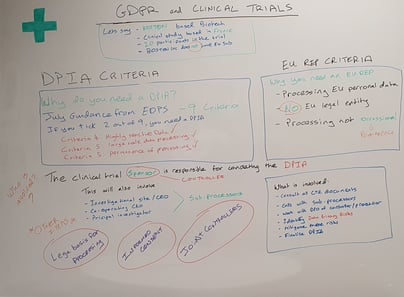 GDPR and CLINICAL TRIALS
Lets say - BOSTON based Biotech
- Clinical study based in France
- participants in the trial
- BOSTON INC does not have EU Sub
DPIA CRITERIA
Why do you need a DPIA?
July Guidance from EDPS - 9 Criteria
If you tick 2 out of 9, you need a DPIA
Criteria 4: Highly sensitive Data ✓
Criteria 5: large scale data processing ✓
✓
The clinical trial Sponsor is responsible for conducting the DPIA
CONTROLLER
This will also involve
- Investigational site / CRO
- Co-operating CRO
- Principal investigator
Sub-processors
Legal basis for
PROCESSING
INFORMED
CONSENT
JOINT CONTROLLERS
EU REP CRITERIA
Why you need an EU REP
- Processing EU personal data
- NO EU legal entity
- Processing not occasional
What is involved:
- Consult all CTR documents
- Calls with sub-processors
- Work with DPO of controller/processor
- Identify Data Privacy Risks
- Mitigate these risks
- Finalise DPIA